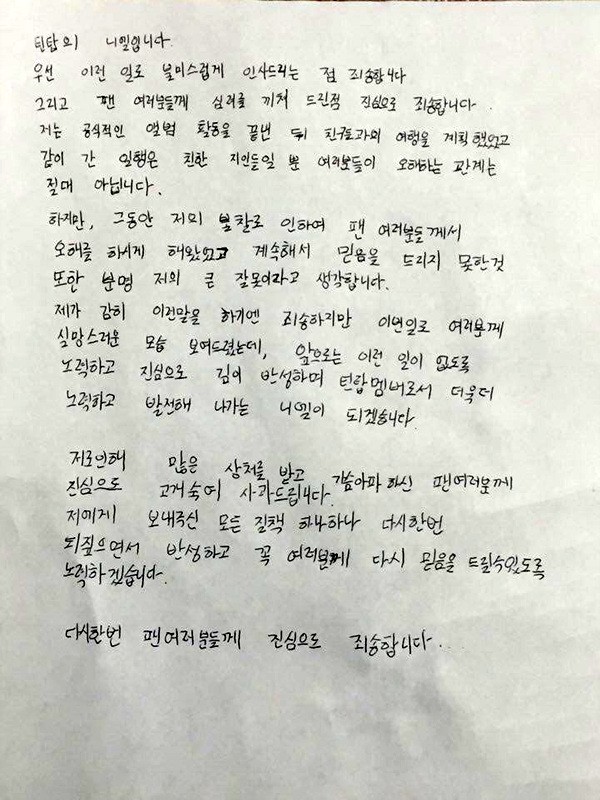 틴탑의 니엘입니다.
우선 이런 일로 불미스럽게 인사드리는 점 죄송합니다
그리고 팬 여러분들께 심려를 끼쳐 드린점 진심으로 죄송합니다.
저는 공식적인 앨범 활동을 끝낸 뒤 친구들과의 여행을 계획했었고
같이 간 일행은 친한 지인들일 뿐 여러분들이 오해하는 관계는
절대 아닙니다.
하지만, 그동안 저의 불찰로 인하여 팬 여러분들께서
오해를 하시게 해왔었고 계속해서 믿음을 드리지 못한것
또한 분명 저의 큰 잘못이라고 생각합니다.
제가 감히 이런말을 하기엔 죄송하지만 이번일로 여러분께
실망스러운 모습 보여드렸는데, 앞으로는 이런 일이 없도록
노력하고 진심으로 깊이 반성하며 틴탑멤버로서 더욱더
노력하고 발전해 나가는 니엘이 되겠습니다.
저로인해 많은 상처를 받고 가슴아파 하신 팬여러분께
진심으로 고개숙여 사과드립니다.
저에게 보내주신 모든 질책 하나하나 다시한번
되짚으면서 반성하고 꼭 여러분께 다시 믿음을 드릴수있도록
노력하겠습니다.
다시한번 팬여러분들께 진심으로 죄송합니다...